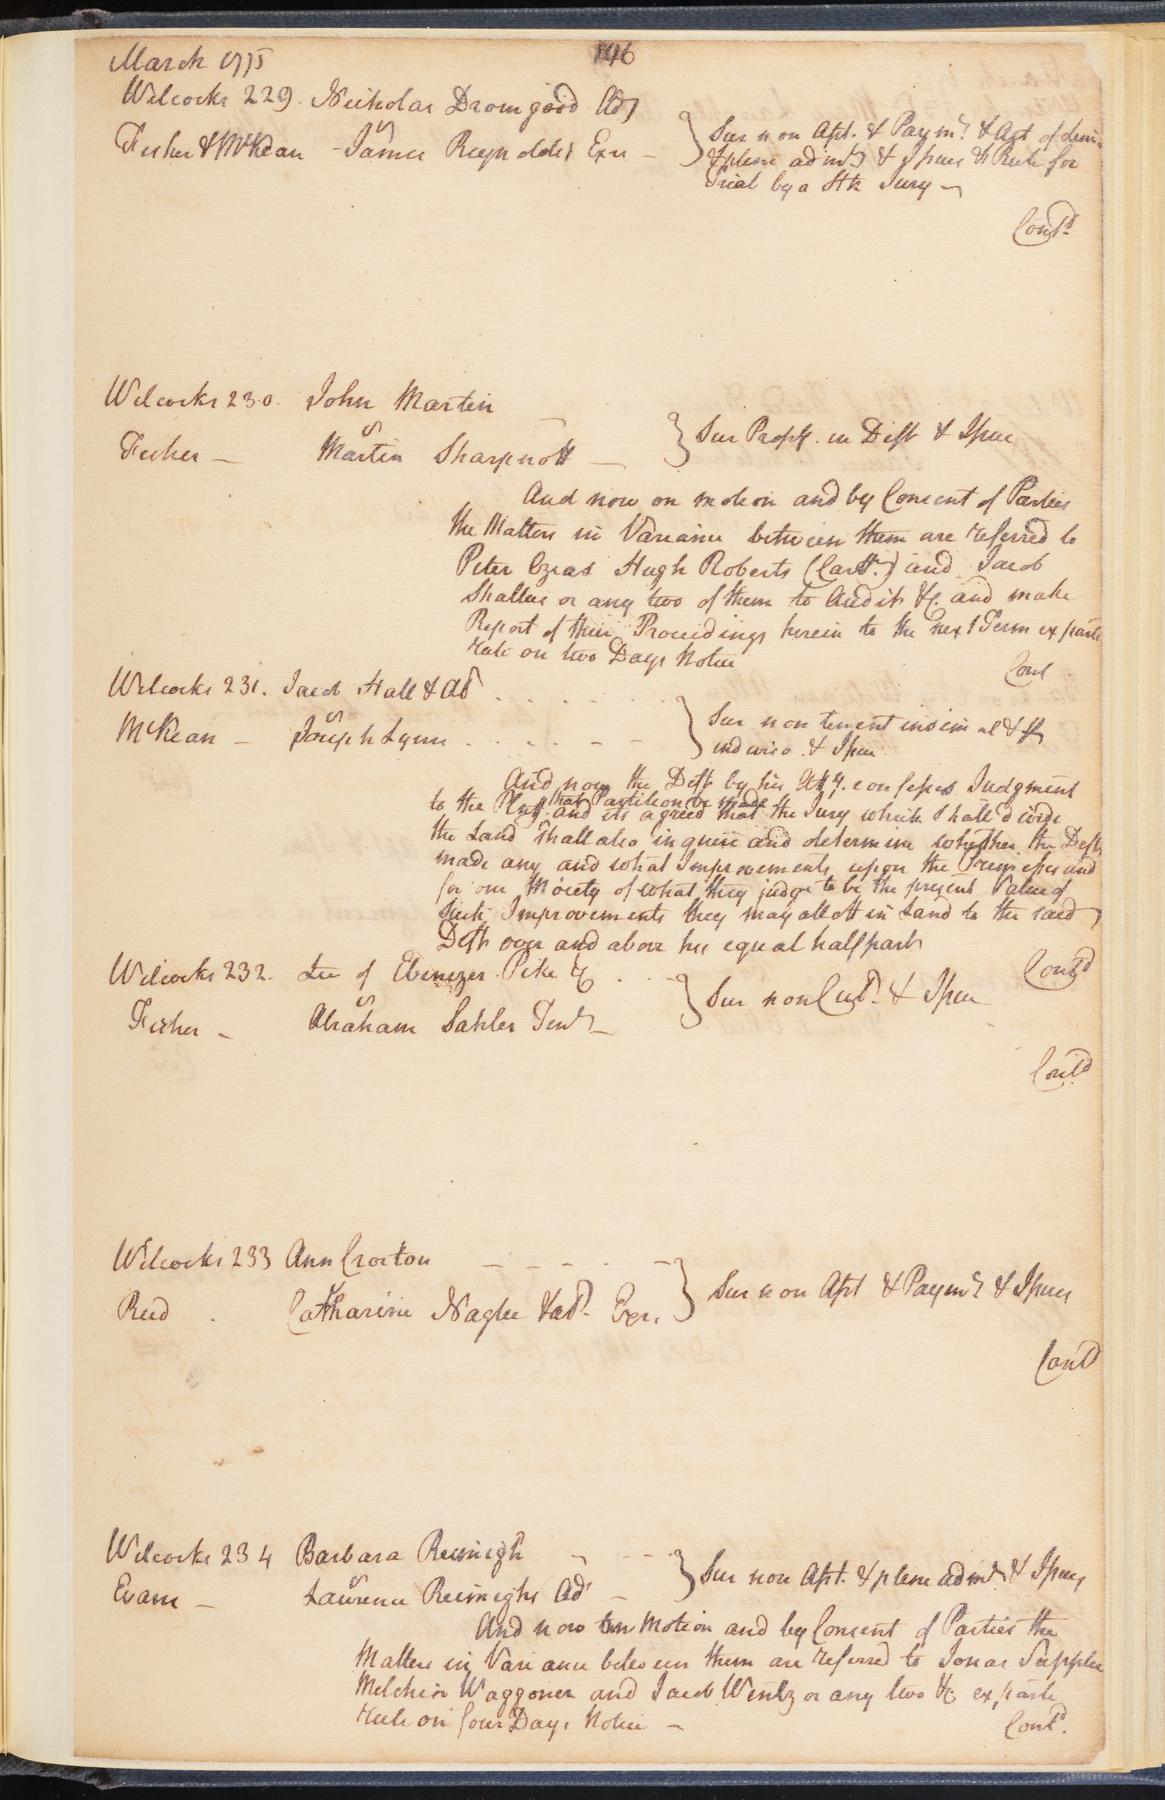 146
March 1775
Wilcocks 229. Nicholas Dromgood Ad
vs
Fisher & McKean - James Reynolds's Exr -
Sur non Apt. & Paymt. & Agt of
& plene admd & Issues & Rule for
Trial by a Stk Jury
Contd
Wilcocks 230. John Martin
vs
Fisher - Martin Sharpnott -
Sur in Deft & Issue
And now on motion and by Consent of Parties
the Matters in Variance between them are referred to
Peter Ozeas Hugh Roberts (Cartr.) and Jacob
Shallus or any two of them to Audit &c. and make
Report of their Proceedings herein to the next Term ex parte
rule on two Days Notice
Cont
Wilcocks 231. Jacob Hall & Ad
vs
McKean - Joseph Lynn
Sur non tenent insimul &
indiviso & Issue
And now the Deft by his Atty. confesses Judgment
that Partition be made
to the Plff. and its agreed that the Jury which shall divide
the Land shall also inquire and determine whether the Deft
made any and what Improvements upon the Premisses and
for one Moiety of what they judge to be the present Value of
such Improvements they may allott in Land to the said
Deft over and above his equal half part
Contd
Wilcocks 232. Lee of Ebenezer Pike &c
vs
Fisher - Abraham Sahler Tent -
Sur non Cul. & Issue
Contd
Wilcocks 233 Ann Croston
vs
Reed . Catharine Naglee & ad. Exr.
Sur non Apt & Paymt & Issues
Contd
Wilcocks 234 Barbara Reimigh
vs
Evans - Lawrence Reimighs Ad -
Sur non Apt. & plene admt & Issues
And now on Motion and by Consent of Parties the
Matters in Variance between them are referred to Jonas Supplee
Melchior Waggoner and Jacob Wentz or any two &c ex parte
rule on four Days Notice -
Contd.